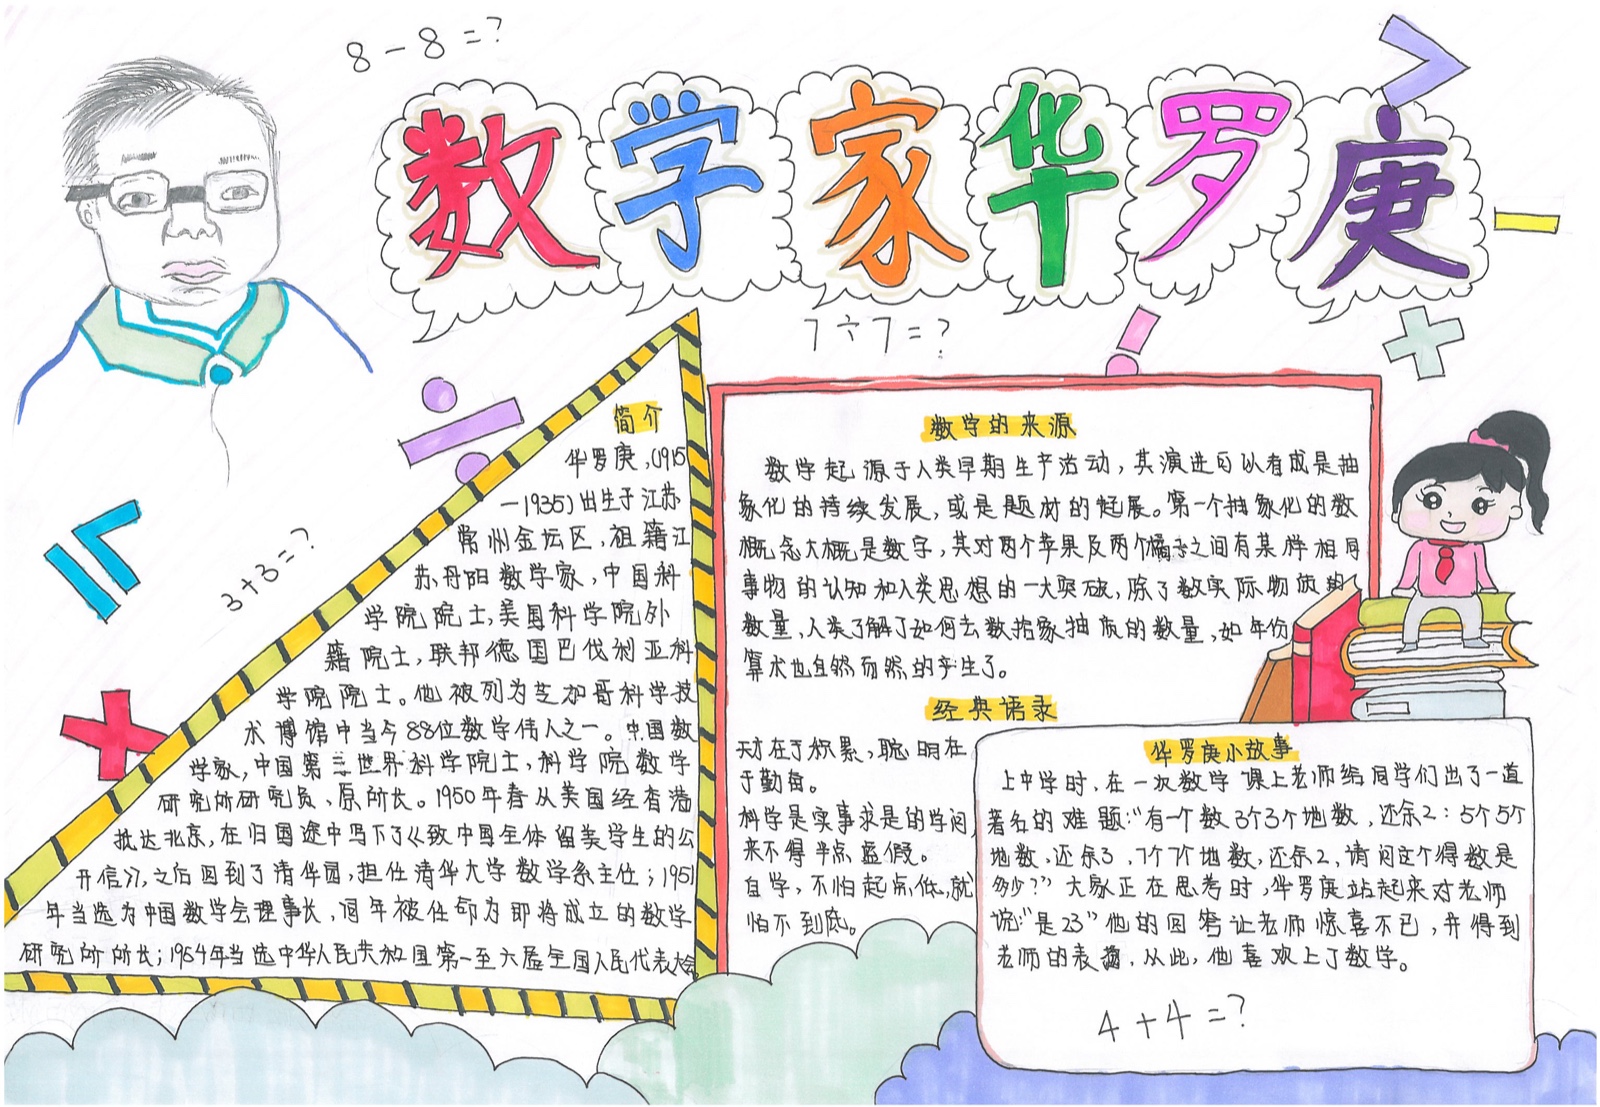 8-8=?
数学家华罗庚
7÷7=?
3+3=?
简介
华罗庚,(1915
—1935)出生于江苏
常州金坛区,祖籍江
苏丹阳数学家,中国科
学院院士,美国科学院外
籍院士,联邦德国巴伐利亚科
学院院士。他被列为芝加哥科学技
术博馆中当今88位数学伟人之一。中国数
学家,中国第三世界科学院士,科学院数学
研究所研究员,原所长。1950年春从美国经香港
抵达北京,在归国途中写下了《致中国全体留美学生的公
开信》,之后回到了清华园,担任清华大学数学系主任;1951
年当选为中国数学会理事长,同年被任命为即将成立的数学
研究所所长;1954年当选中华人民共和国第一至六届全国人民代表大会
数学的来源
数学起源于人类早期生产活动,其演进可以看成是抽
象化的持续发展,或是题材的起展。第一个抽象化的数
概念大概是数字,其对两个苹果及两个橘子之间有某样相同
事物的认知和人类思想的一大突破,除了数实际物质的
数量,人类了解了如何去数抬家抽质的数量,如年份
算术也自然而然的产生了。
经典语录
天才在于积累,聪明在
于勤奋。
科学是实事求是的学问,
来不得半点虚假。
自学,不怕起点低,就
怕不到底。
华罗庚小故事
上中学时,在一次数学课上老师给同学们出了一道
著名的难题:“有一个数3个3个地数,还余2:5个5个
地数,还余3,7个7个地数,还余2,请问这个得数是
多少?”大家正在思考时,华罗庚站起来对老师
说:“是23”他的回答让老师惊喜不已,并得到
老师的表扬,从此,他喜欢上了数学。
4+4=?